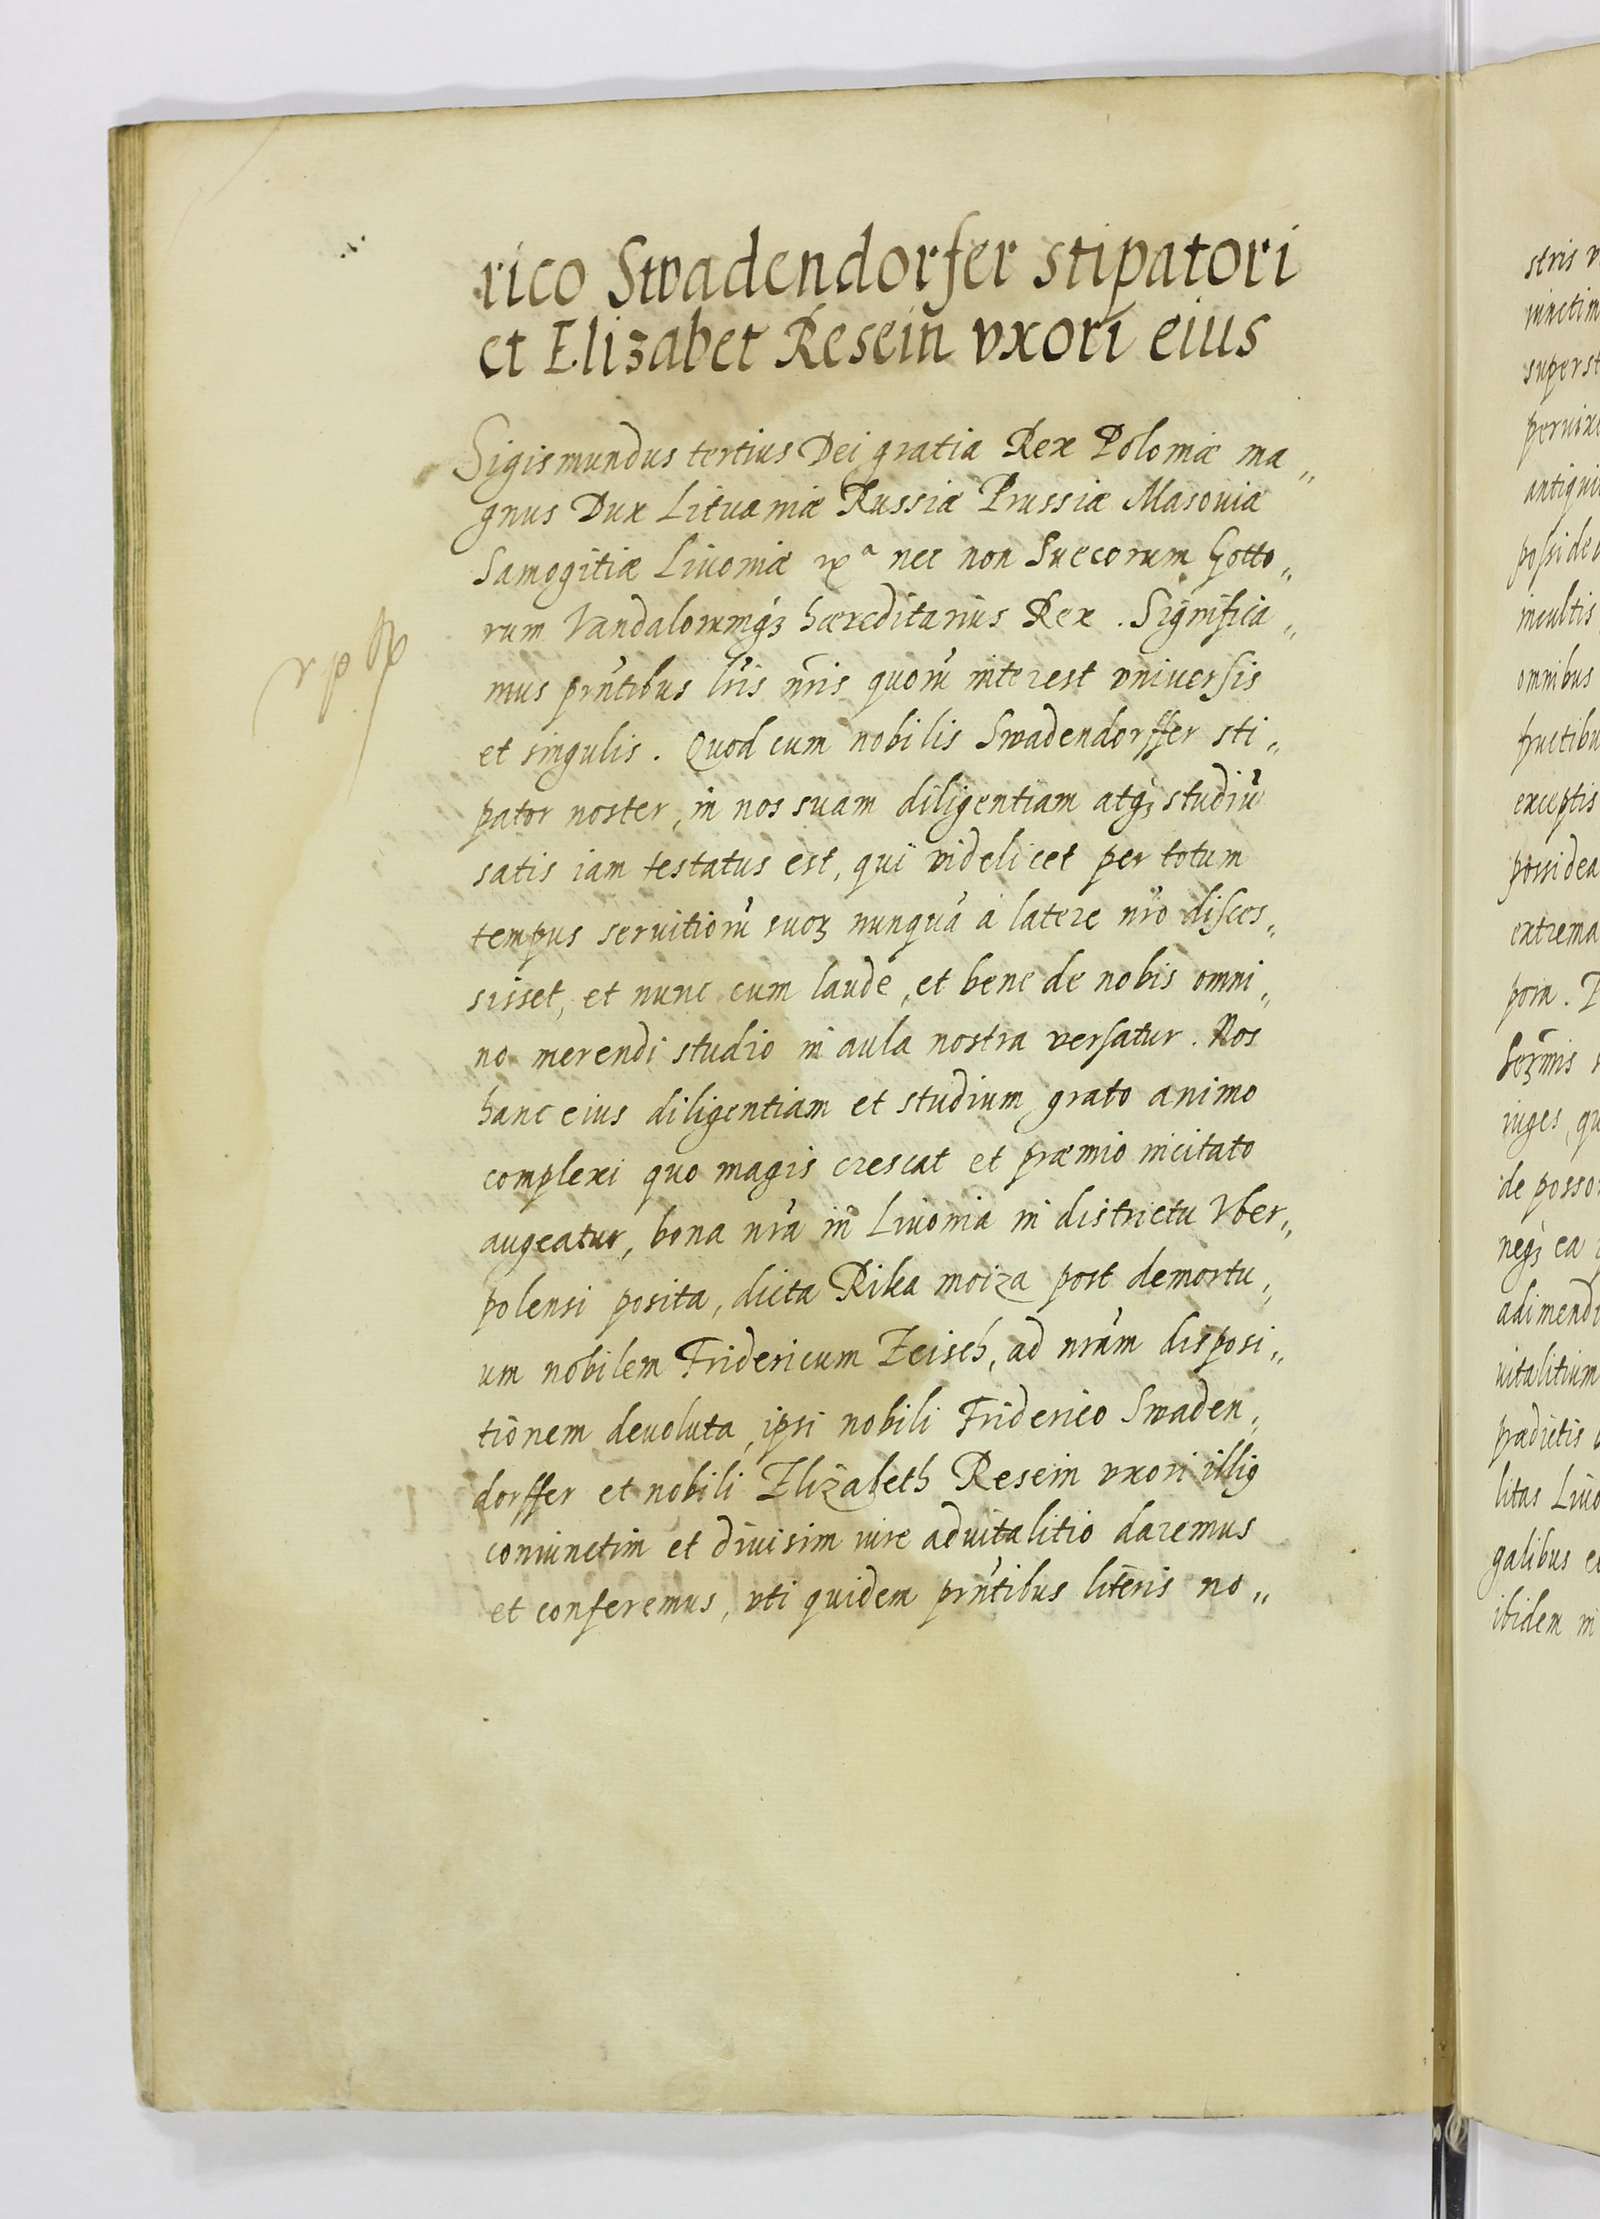 rico Swadendorfer stipatori
et Elizabet Resein vxori eius
Sigismundus tertius Dei gratia Rex Poloniæ ma„
gnus Dux Lituaniæ Russiæ Prussiæ Masouiæ
Samogitiæ Liuoniæ nec non Suecorum Gotto„
rum Vandalorumq3 hæreditarius Rex. Significa„
mus prñtibus lr̃is nr̃is quorũ interest vniuersis
et singulis. Quod cum nobilis Swadendorffer sti„
pator noster, in nos suam diligentiam atq3 studiũ
satis iam testatus est, qui videlicet per totum
tempus seruitiorũ suoꝝ nunquã à latere nr̃o disces„
sisset, et nunc cum laude, et bene de nobis omni„
no merendi studio in aula nostra versatur. Nos
hanc eius diligentiam et studium grato animo
complexi quo magis crescat et præmio incitato
augeatur, bona nr̃a in Liuonia in districtu Vber„
polensi posita, dicta Rika moiza post demortu„
um nobilem Fridericum Zeisch, ad nr̃am disposi„
tionem deuoluta, ipsi nobili Friderico Swaden„
dorffer et nobili Elizabeth Resein vxori illiꝰ
coniunctim et diuisim iure aduitalitio daremus
et conferemus, vti quidem prñtibus literis no„
stris
iunctim
superst
antiqui
posside
incultis
omnibus
fructibu
exceptis
possidea
extrema
pora.
iuges, qu
de posso
neq3 ea
adimendi
uitalitium
prædictis
litas Liuo
galibus
ibidem in